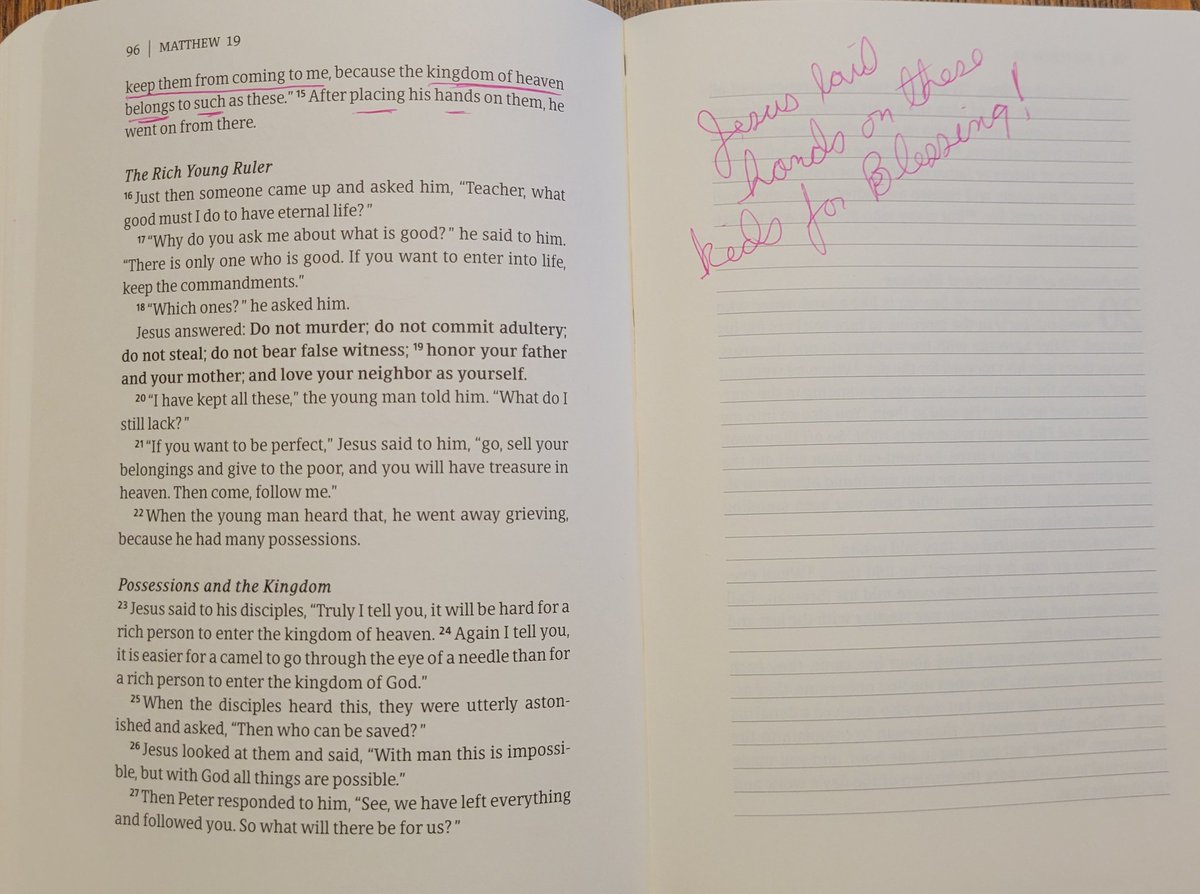 96 | MATTHEW 19
keep them from coming to me, because the kingdom of heaven
belongs to such as these.” ¹⁵ After placing his hands on them, he
went on from there.
The Rich Young Ruler
¹⁶ Just then someone came up and asked him, “Teacher, what
good must I do to have eternal life?”
¹⁷ “Why do you ask me about what is good?” he said to him.
“There is only one who is good. If you want to enter into life,
keep the commandments.”
¹⁸ “Which ones?” he asked him.
Jesus answered: Do not murder; do not commit adultery;
do not steal; do not bear false witness; ¹⁹ honor your father
and your mother; and love your neighbor as yourself.
²⁰ “I have kept all these,” the young man told him. “What do I
still lack?”
²¹ “If you want to be perfect,” Jesus said to him, “go, sell your
belongings and give to the poor, and you will have treasure in
heaven. Then come, follow me.”
²² When the young man heard that, he went away grieving,
because he had many possessions.
Possessions and the Kingdom
²³ Jesus said to his disciples, “Truly I tell you, it will be hard for a
rich person to enter the kingdom of heaven. ²⁴ Again I tell you,
it is easier for a camel to go through the eye of a needle than for
a rich person to enter the kingdom of God.”
²⁵ When the disciples heard this, they were utterly aston-
ished and asked, “Then who can be saved?”
²⁶ Jesus looked at them and said, “With man this is impossi-
ble, but with God all things are possible.”
²⁷ Then Peter responded to him, “See, we have left everything
and followed you. So what will there be for us?”
Jesus laid
hands on these
kids for Blessing!